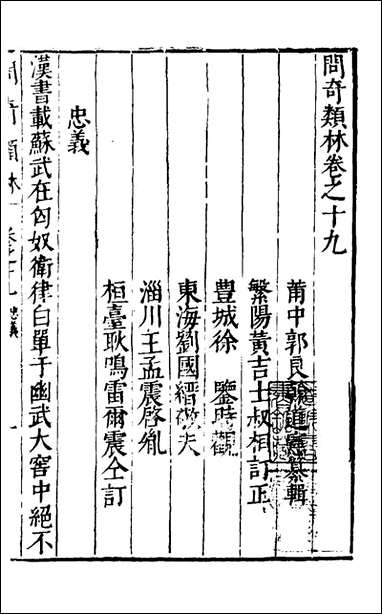 問奇類林卷之十九
莆中郭良翰道憲纂輯
繁陽黃吉士叔相訂正
豐城徐鑒時觀
東海劉國縉
夫
淄川王孟震啓胤
桓臺耿鳴雷爾震仝訂
忠義
漢書載蘇武在匈奴衛律白單于幽武大窖中絕不
問奇類林 卷之十九 忠義 一